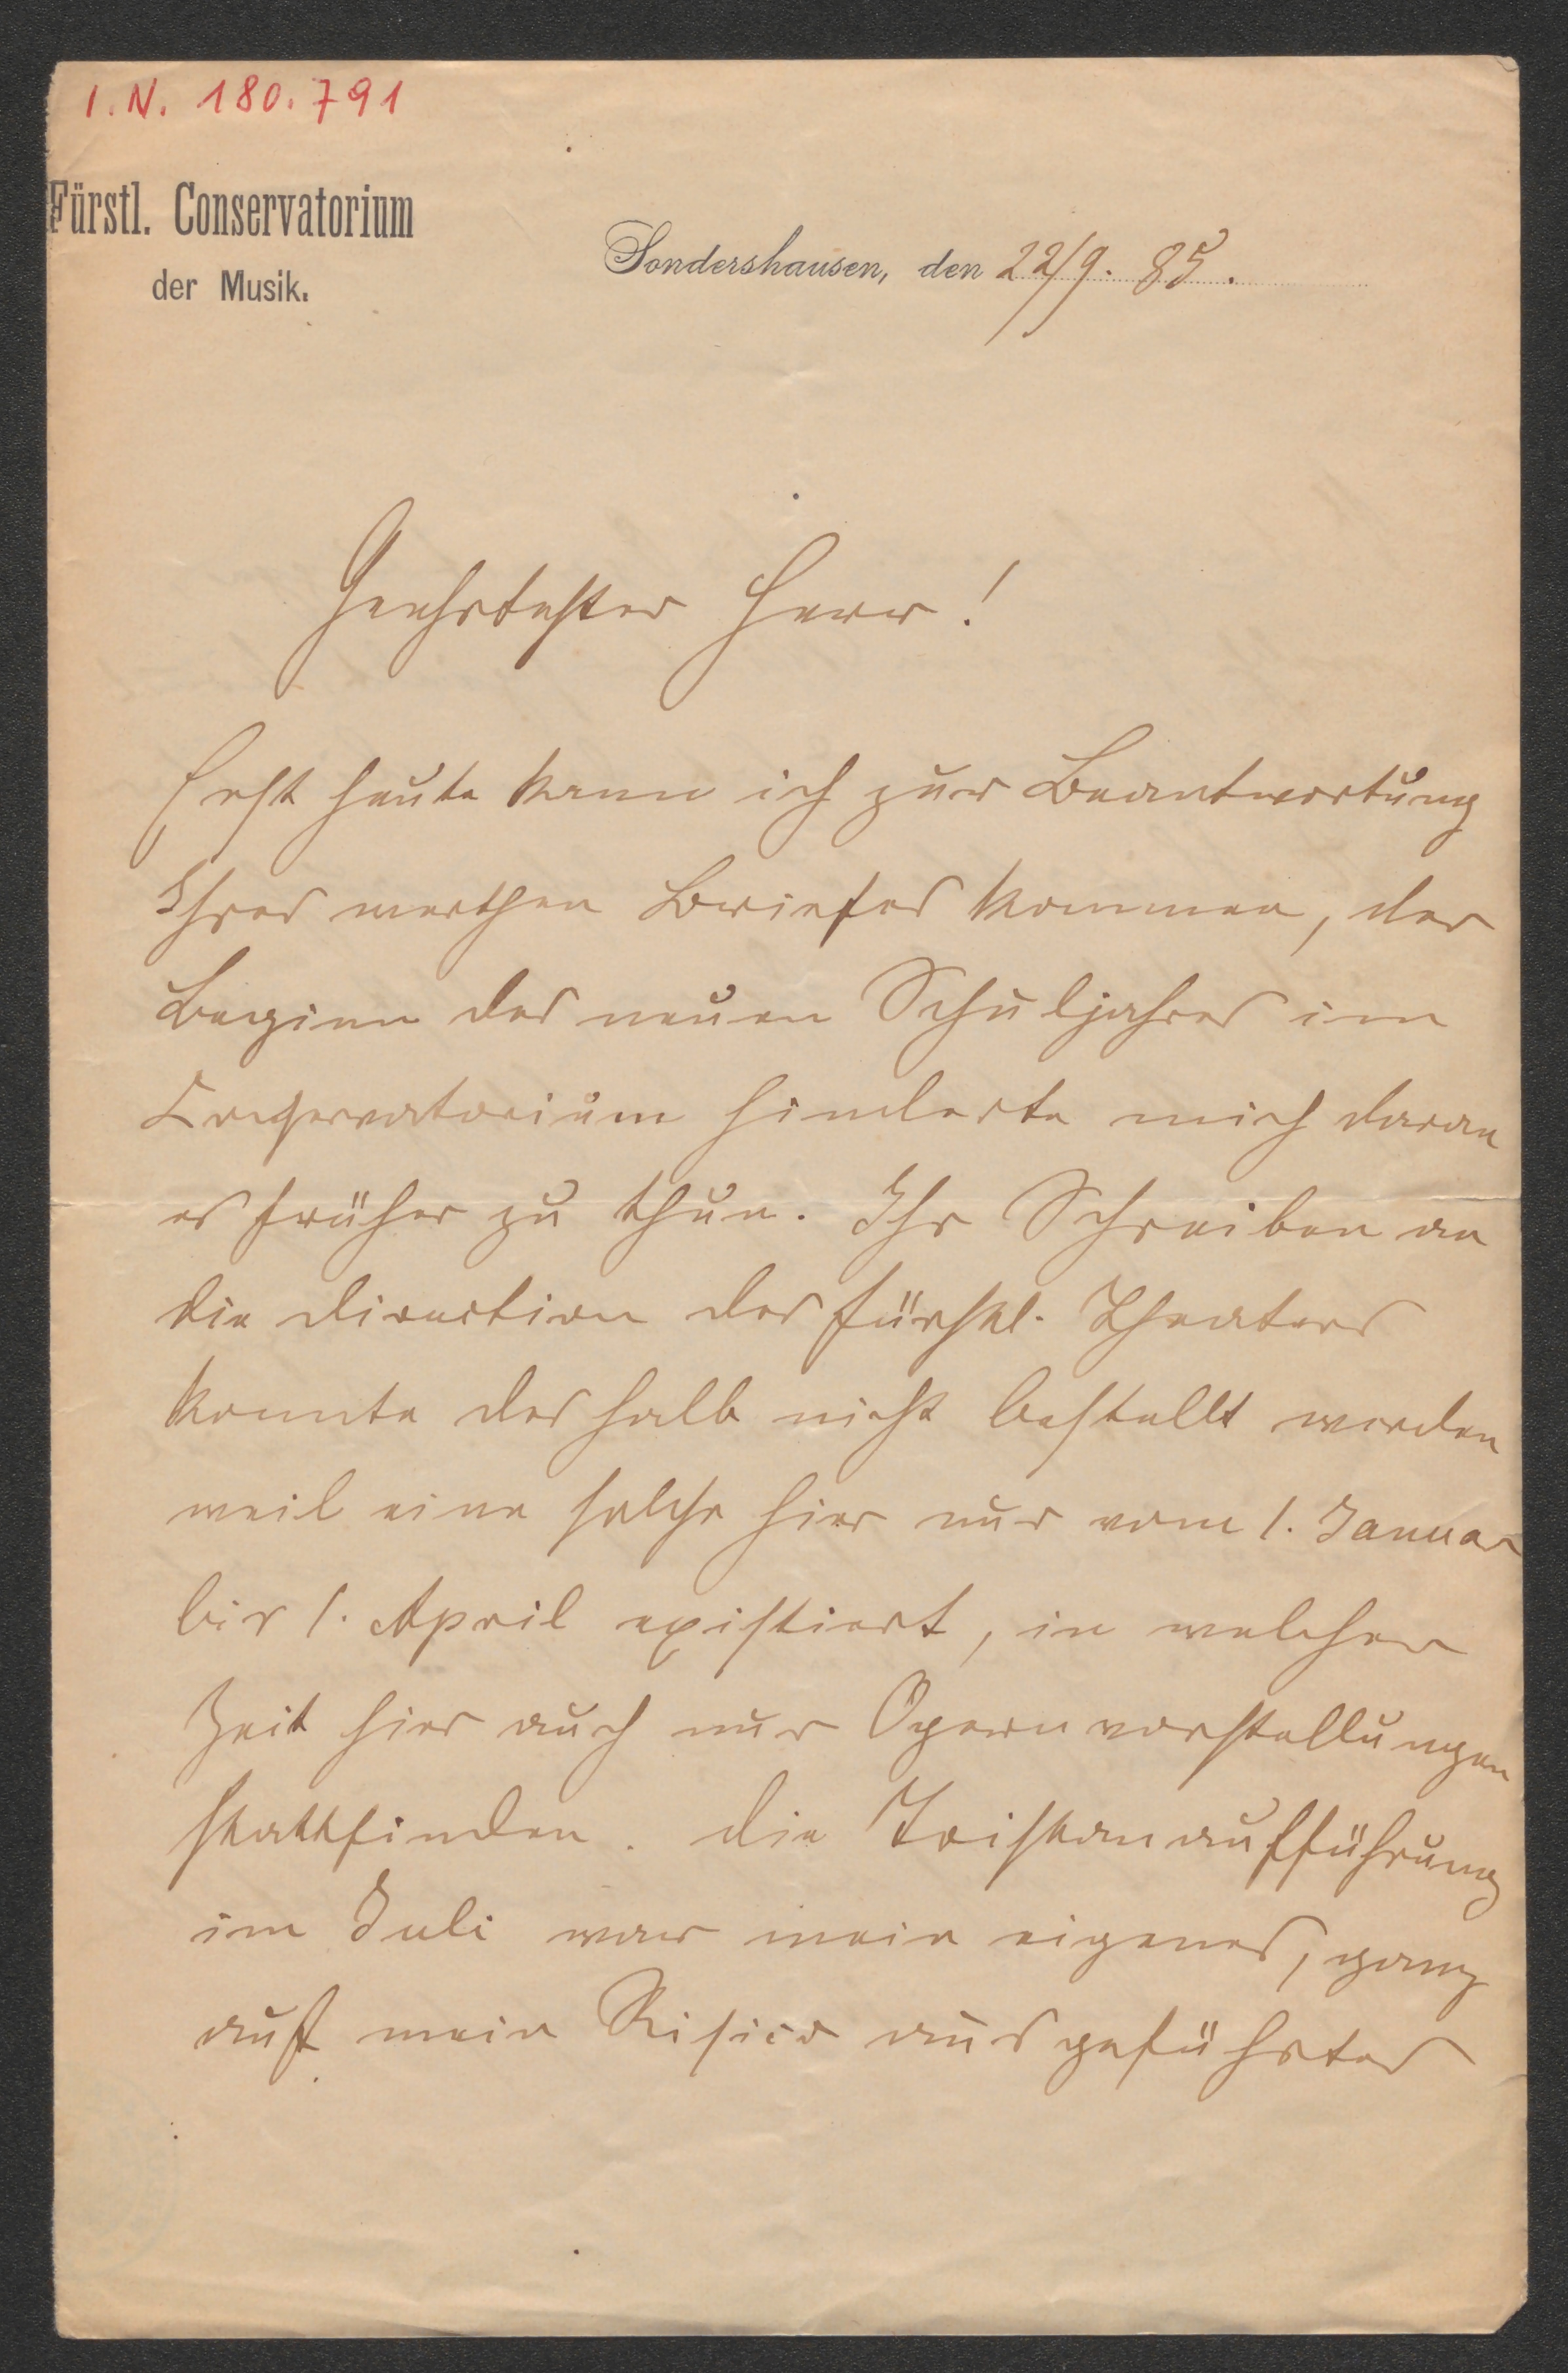 I.N. 180.791
Fürstl. Conservatorium
der Musik.
Sondershausen, den 22/9. 85.
Geehrtester Herr!
Erst heute kann ich zur Beantwortung
Ihres werthen Briefes kommen, der
Beginn des neuen Schuljahres im
Conservatorium hinderte mich daran
es früher zu thun. Ihr Schreiben an
die Direction des fürstl. Theaters
konnte deshalb nicht bestellt werden
weil eine solche hier nur vom 1. Januar
bis 1. April existiert, in welcher
Zeit hier auch nur Opernvorstellungen
stattfinden. Die Tristanaufführung
im Juli war mein eigenes, ganz
auf mein Risico ausgeführtes